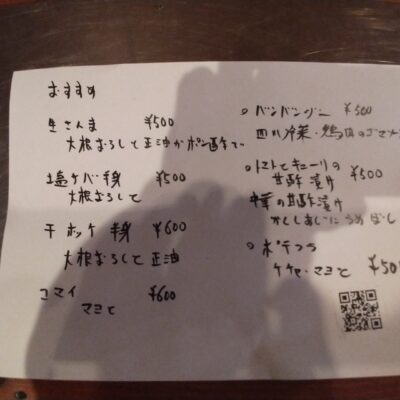 おすすめ
生さんま ¥500
大根おろしと正油かポン酢で
塩サバ半身 ¥500
大根おろしと
干ホッケ 半身 ¥600
大根おろしと正油
コマイ ¥600
マヨと
○バンバンジー ¥500
四川冷菜・鶏肉のゴマ
○トマトとキューリの
甘酢漬け ¥500
の甘酢漬け
かくしあじにうめぼし
○ポテフラ
ケチャ・マヨと ¥50